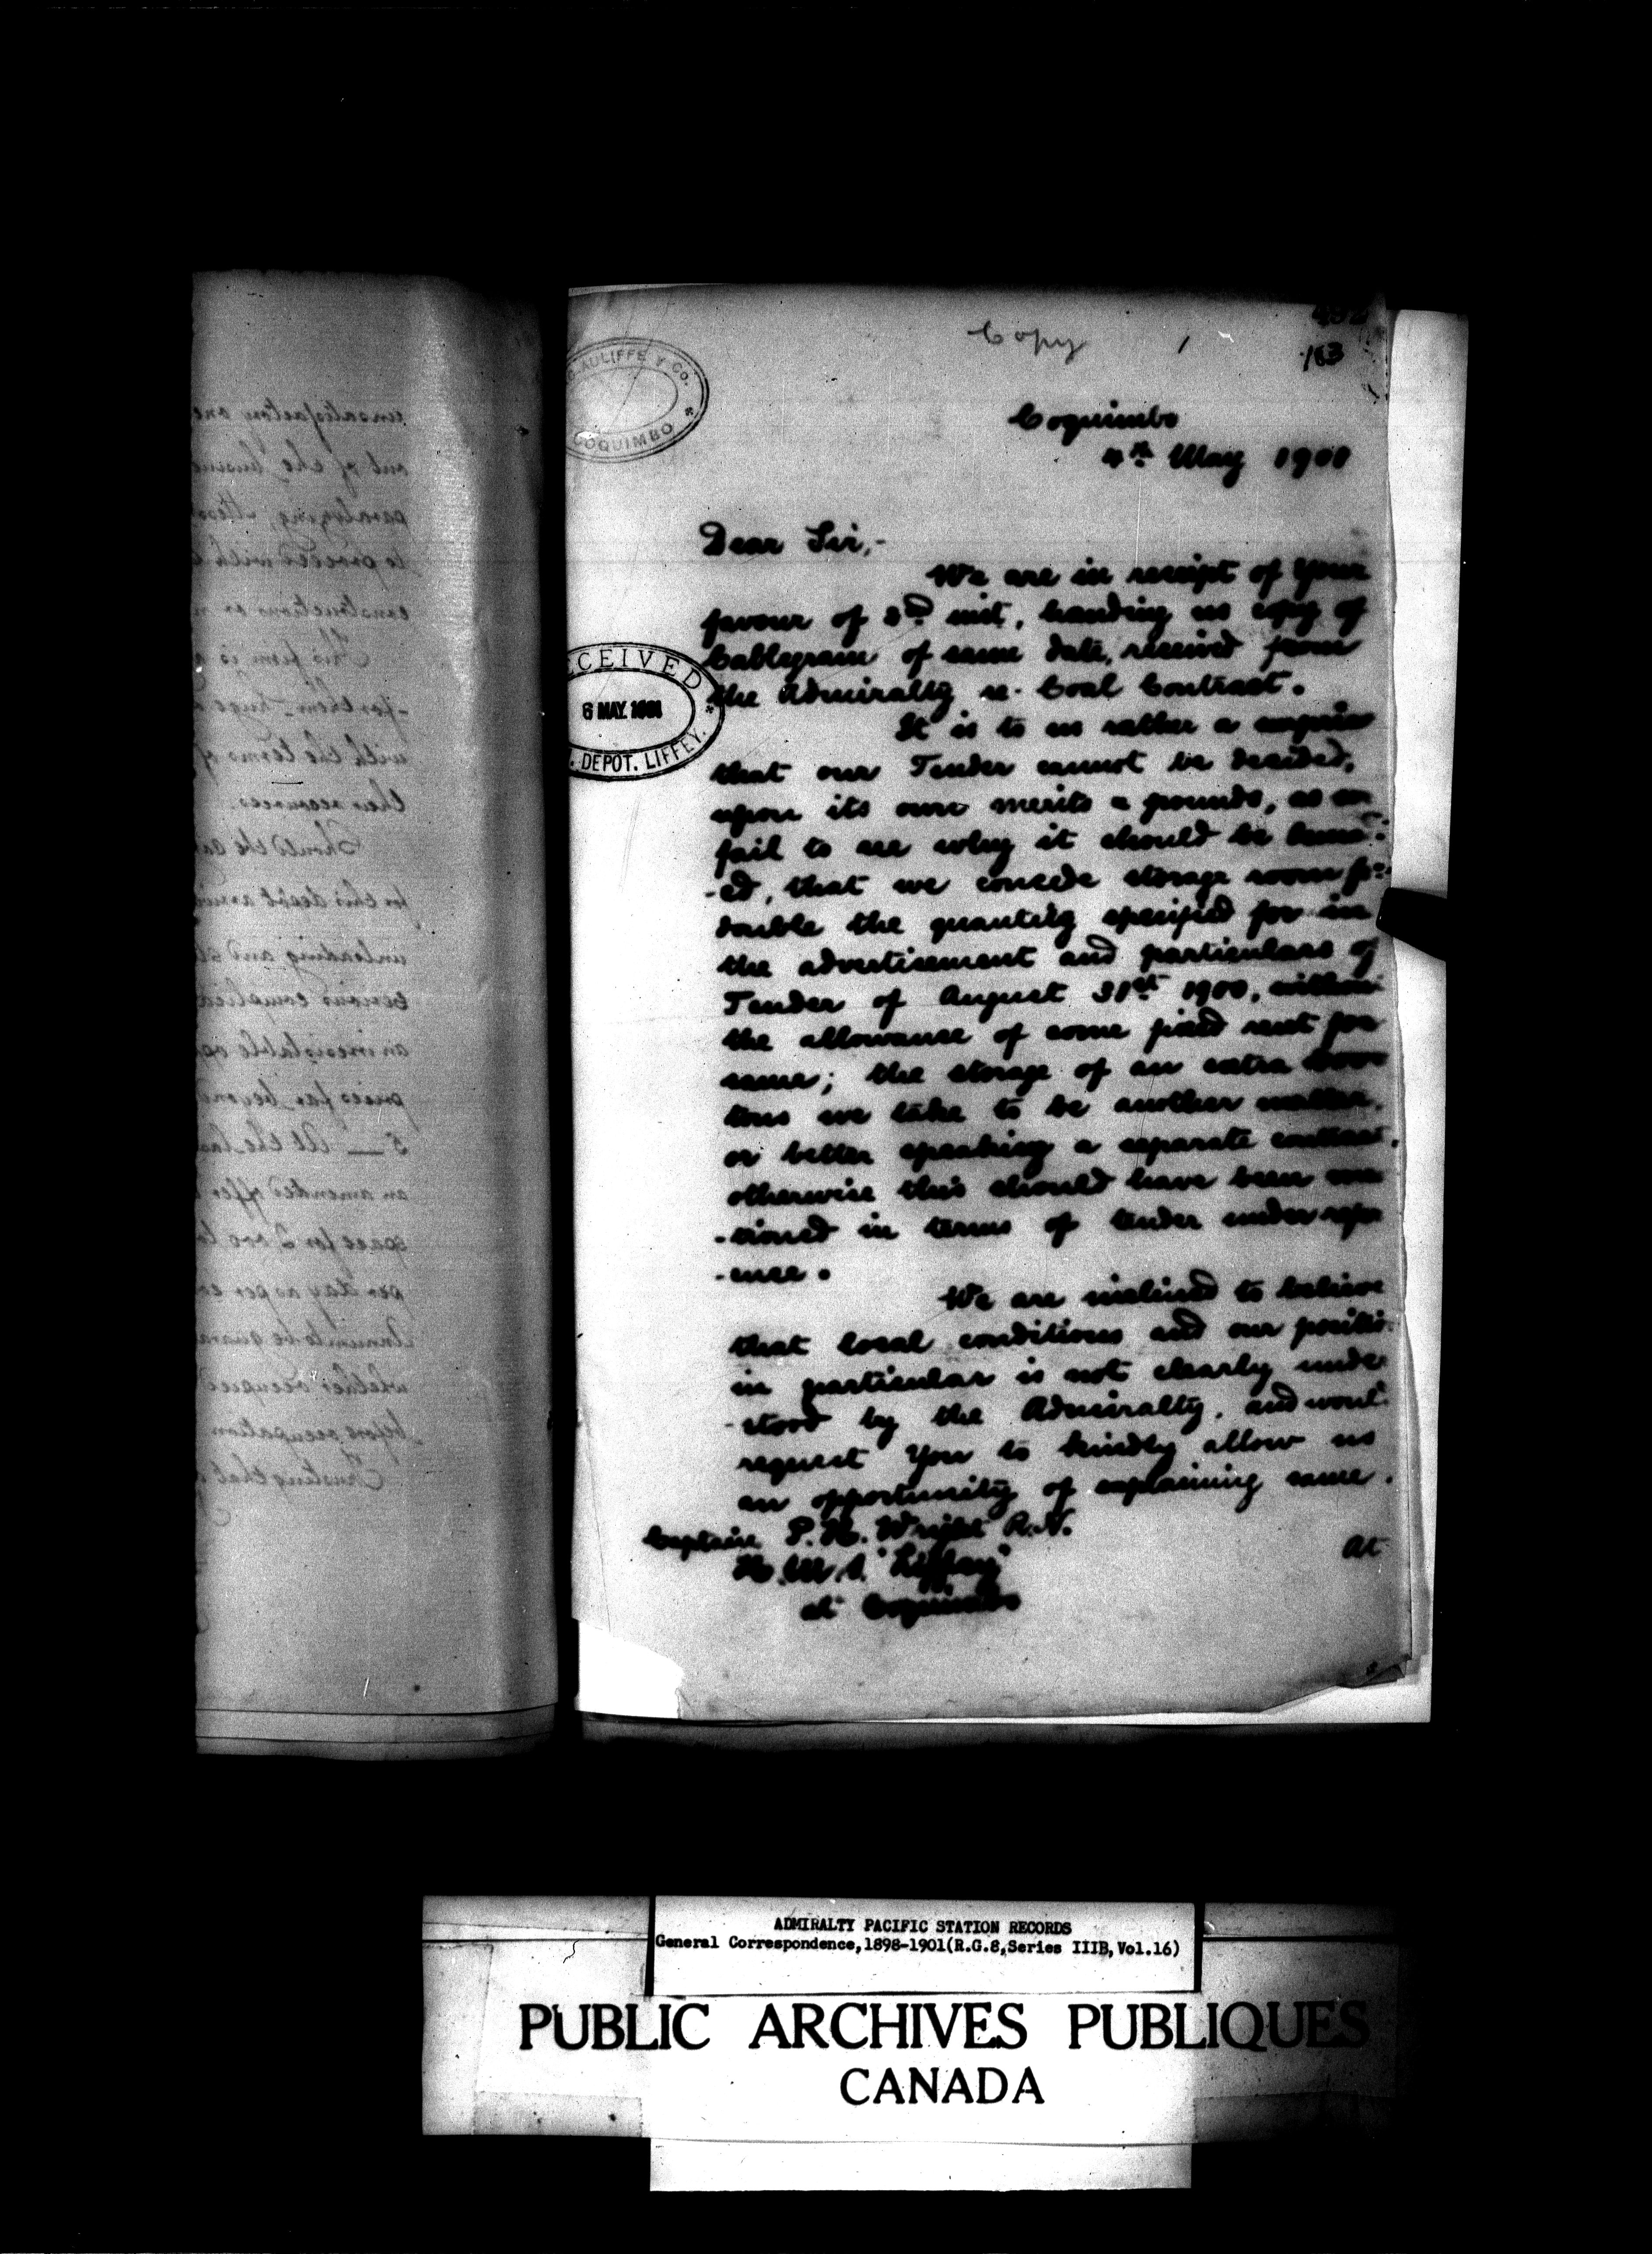 Copy
163
AULIFFE Y CO.
COQUIMBO
Coquimbo
4th May 1901
Dear Sir,-
We are in receipt of your
favour of 3rd inst, handing us copy of
Cablegram of same date, received from
the Admiralty re. Coal Contract.
CEIVED
6 MAY. 1901
DEPOT. LIFFEY.
It is to us rather a surprise
that our Tender cannot be decided,
upon its own merits & grounds, as we
fail to see why it should be
-ed, that we concede storage room for
double the quantity specified for in
the advertisement and particulars of
Tender of August 31st 1900, without
the allowance of some fixed rent for
same; the storage of an extra
tons we take to be another matter,
or better speaking a separate contract,
otherwise this should have been men
-tioned in terms of tender under refer
-ence.
We are inclined to believe
that local conditions and our position
in particular is not clearly under
-stood by the Admiralty, and would
request You to kindly allow us
an opportunity of explaining same.
Captain P. H. Wright R.N.
H.M.S. "Liffey"
at Coquimbo
At
unsatisfactory and
out of the
to proceed with
constructions or
This firm is
with the terms of
their resources.
Should the
for this depot
unloading and
serious
prices far beyond
5 — At the
an amended offer
space for 2000
per day as per
whether occupied
before occupation
Trusting that
ADMIRALTY PACIFIC STATION RECORDS
General Correspondence, 1898-1901(R.G.8,Series IIIB, Vol.16)
PUBLIC ARCHIVES PUBLIQUES
CANADA